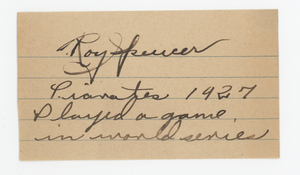 Roy Spencer
Piarates 1927
Played a game
in world series